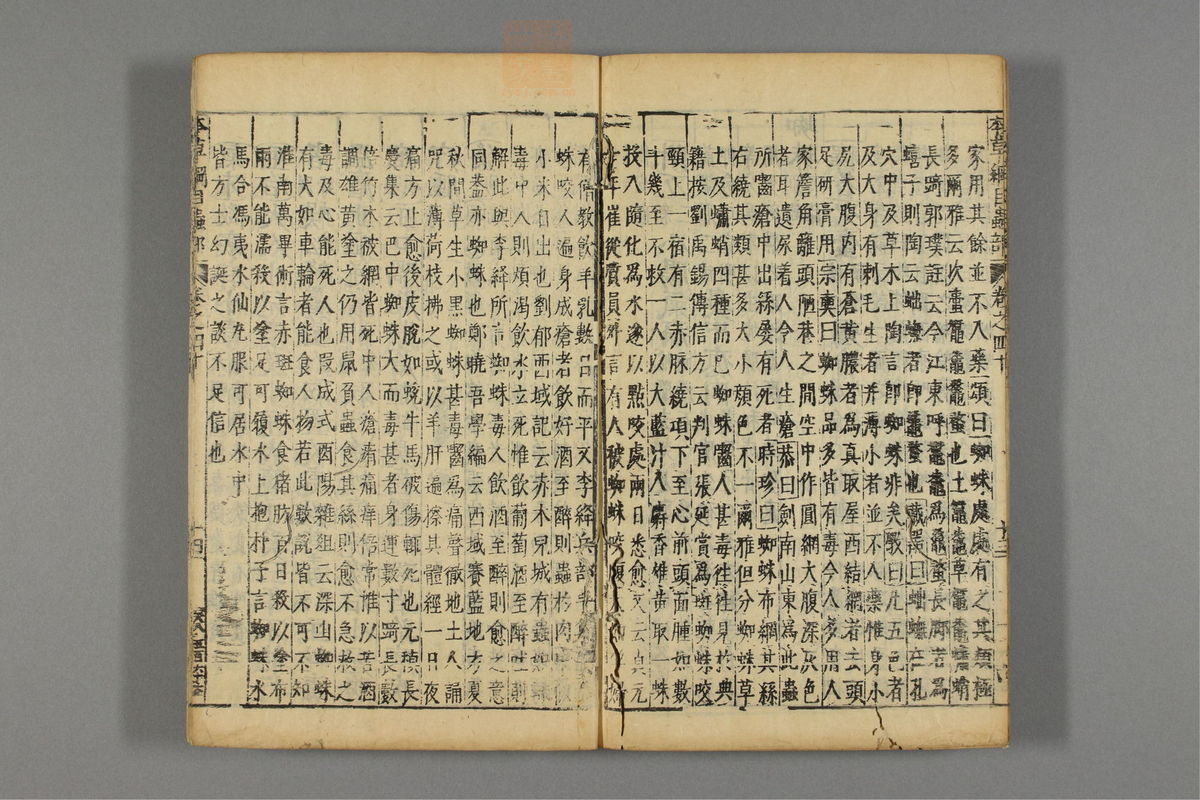 本草綱目蟲部 卷之四十
家用其餘並不入藥頌曰蜘蛛處處有之其類極
多爾雅云次蟗鼅鼄鼄蝥也土鼅鼄草鼅鼄蠨蛸
長踦郭璞註云今江東呼鼅鼄為鼄蝥長脚者為
蟢子則陶云蠨蟱者即鼄蝥也藏器曰蠨蟱在孔
穴中及草木上陶言即蜘蛛非矣斅曰凡五色者
及大身有刺毛生者并薄小者並不入藥惟身小
尻大腹內有蒼黃膿者為真取屋西結網者去頭
足研膏用宗奭曰蜘蛛品多皆有毒今人多用人
家簷角籬頭陋巷之間空中作圓網大腹深灰色
者耳遺尿着人令人生瘡恭曰劍南山東為此蟲
所齧瘡中出絲屡有死者時珍曰蜘蛛布網其絲
右繞其類甚多大小顏色不一爾雅但分蜘蛛草
土及蠨蛸四種而已蜘蛛齧人甚毒往往見於典
籍按劉禹錫傳信方云判官張延賞為斑蜘蛛咬
頸上一宿有二赤脉繞項下至心前頭面腫如數
斗幾至不救一人以大藍汁入麝香雄黃取一蛛
投入隨化為水遂以點咬處兩日悉愈又云貞元
十年崔從質員外言有人被蜘蛛咬腹
有僧教飲羊乳數日而平又李絳兵部手
蛛咬人遍身成瘡者飲好酒至醉則蟲於肉中似
小米自出也劉郁西域記云赤木兒城有蟲如蛛
毒中人則煩渴飲水立死惟飲葡萄酒至醉吐則
解此與李絳所言蜘蛛毒人飲酒至醉則愈之意
同蓋亦蜘蛛也鄭曉吾學編云西域賽藍地方夏
秋間草生小黑蜘蛛甚毒齧為痛聲徹地土人誦
咒以薄荷枝拂之或以羊肝遍擦其體經一日夜
痛方止愈後皮脫如蛻牛馬被傷輒死也元稹長
慶集云巴中蜘蛛大而毒甚者身運數寸踦長數
倍竹木被網皆死中人瘡痏痛痒倍常惟以苦酒
調雄黃塗之仍用鼠負蟲食其絲則愈不急救之
毒及心能死人也段成式酉陽雜俎云深山蜘蛛
有大如車輪者能食人物若此數說皆不可不知
淮南萬畢術言赤斑蜘蛛食猪肪百日殺以塗布
雨不能濡殺以塗足可履水上抱朴子言蜘蛛水
馬合馮夷水仙丸服可居水中
皆方士幻誕之談不足信也
本草綱目蟲部 卷之四十